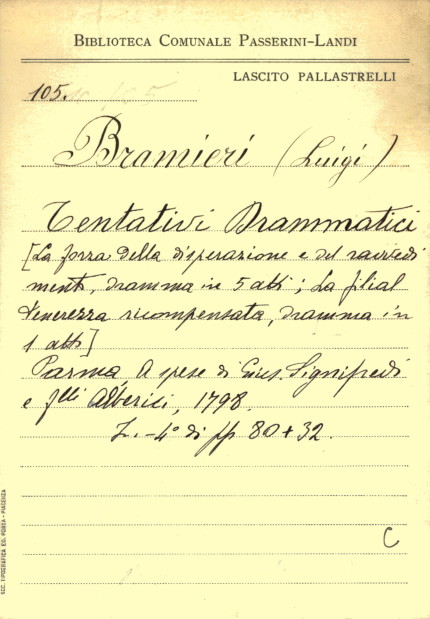 BIBLIOTECA COMUNALE PASSERINI-LANDI
LASCITO PALLASTRELLI
105.
Bramieri (Luigi)
Tentativi Drammatici
[La forza della disperazione e del ravvedi
mento, dramma in 5 atti; La filial
tenerezza ricompensata, dramma in
1 atto]
Parma, A spese di Gius. Lignifredi
e flli Alberici, 1798.
-4° di pp 80 + 32.
C
SCC. TIPOGRAFICA ED. PORTA - PIACENZA